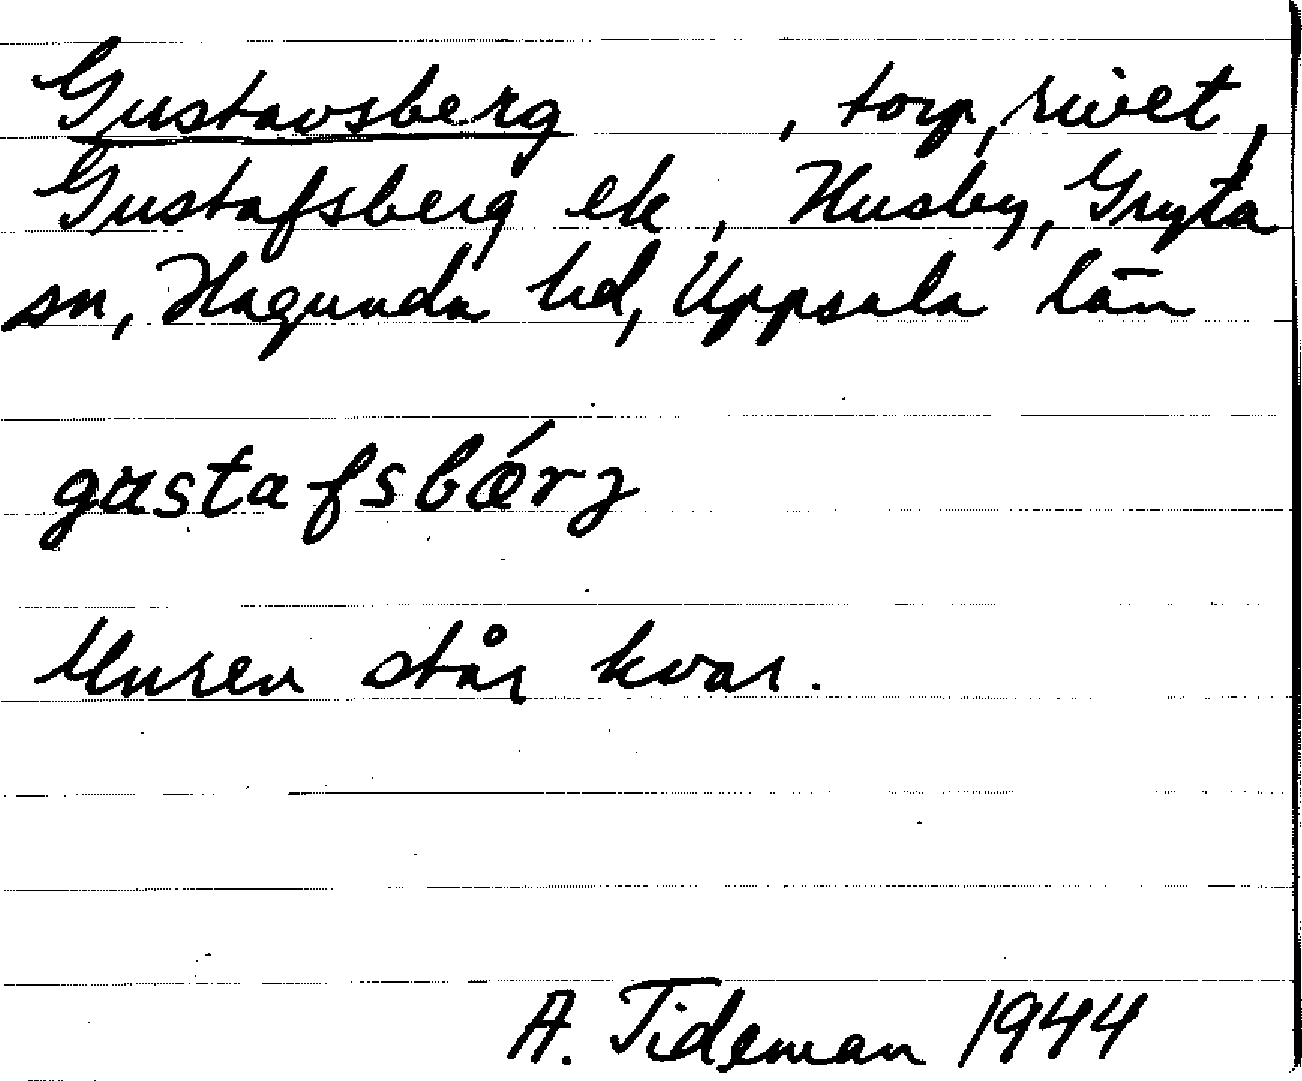 Gustavsberg , torp, rivet,
Gustafsberg ek , Husby, Gryta
sn, Hagunda hd, Uppsala län
gustafsbǽrj
Muren står kvar.
A. Tideman 1944